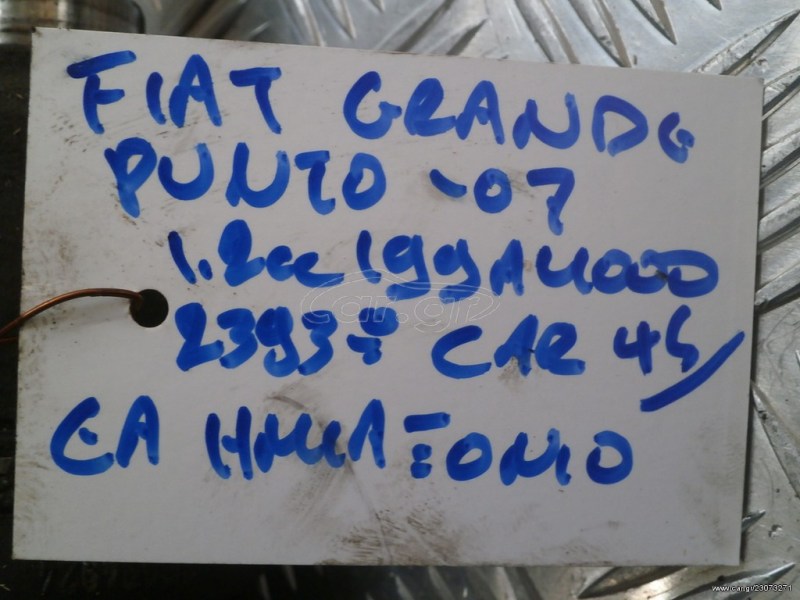 FIAT GRANDE
PUNTO -07
1.2cc 199A4000
CAR 45/
car.gr
www.car.gr/23073271